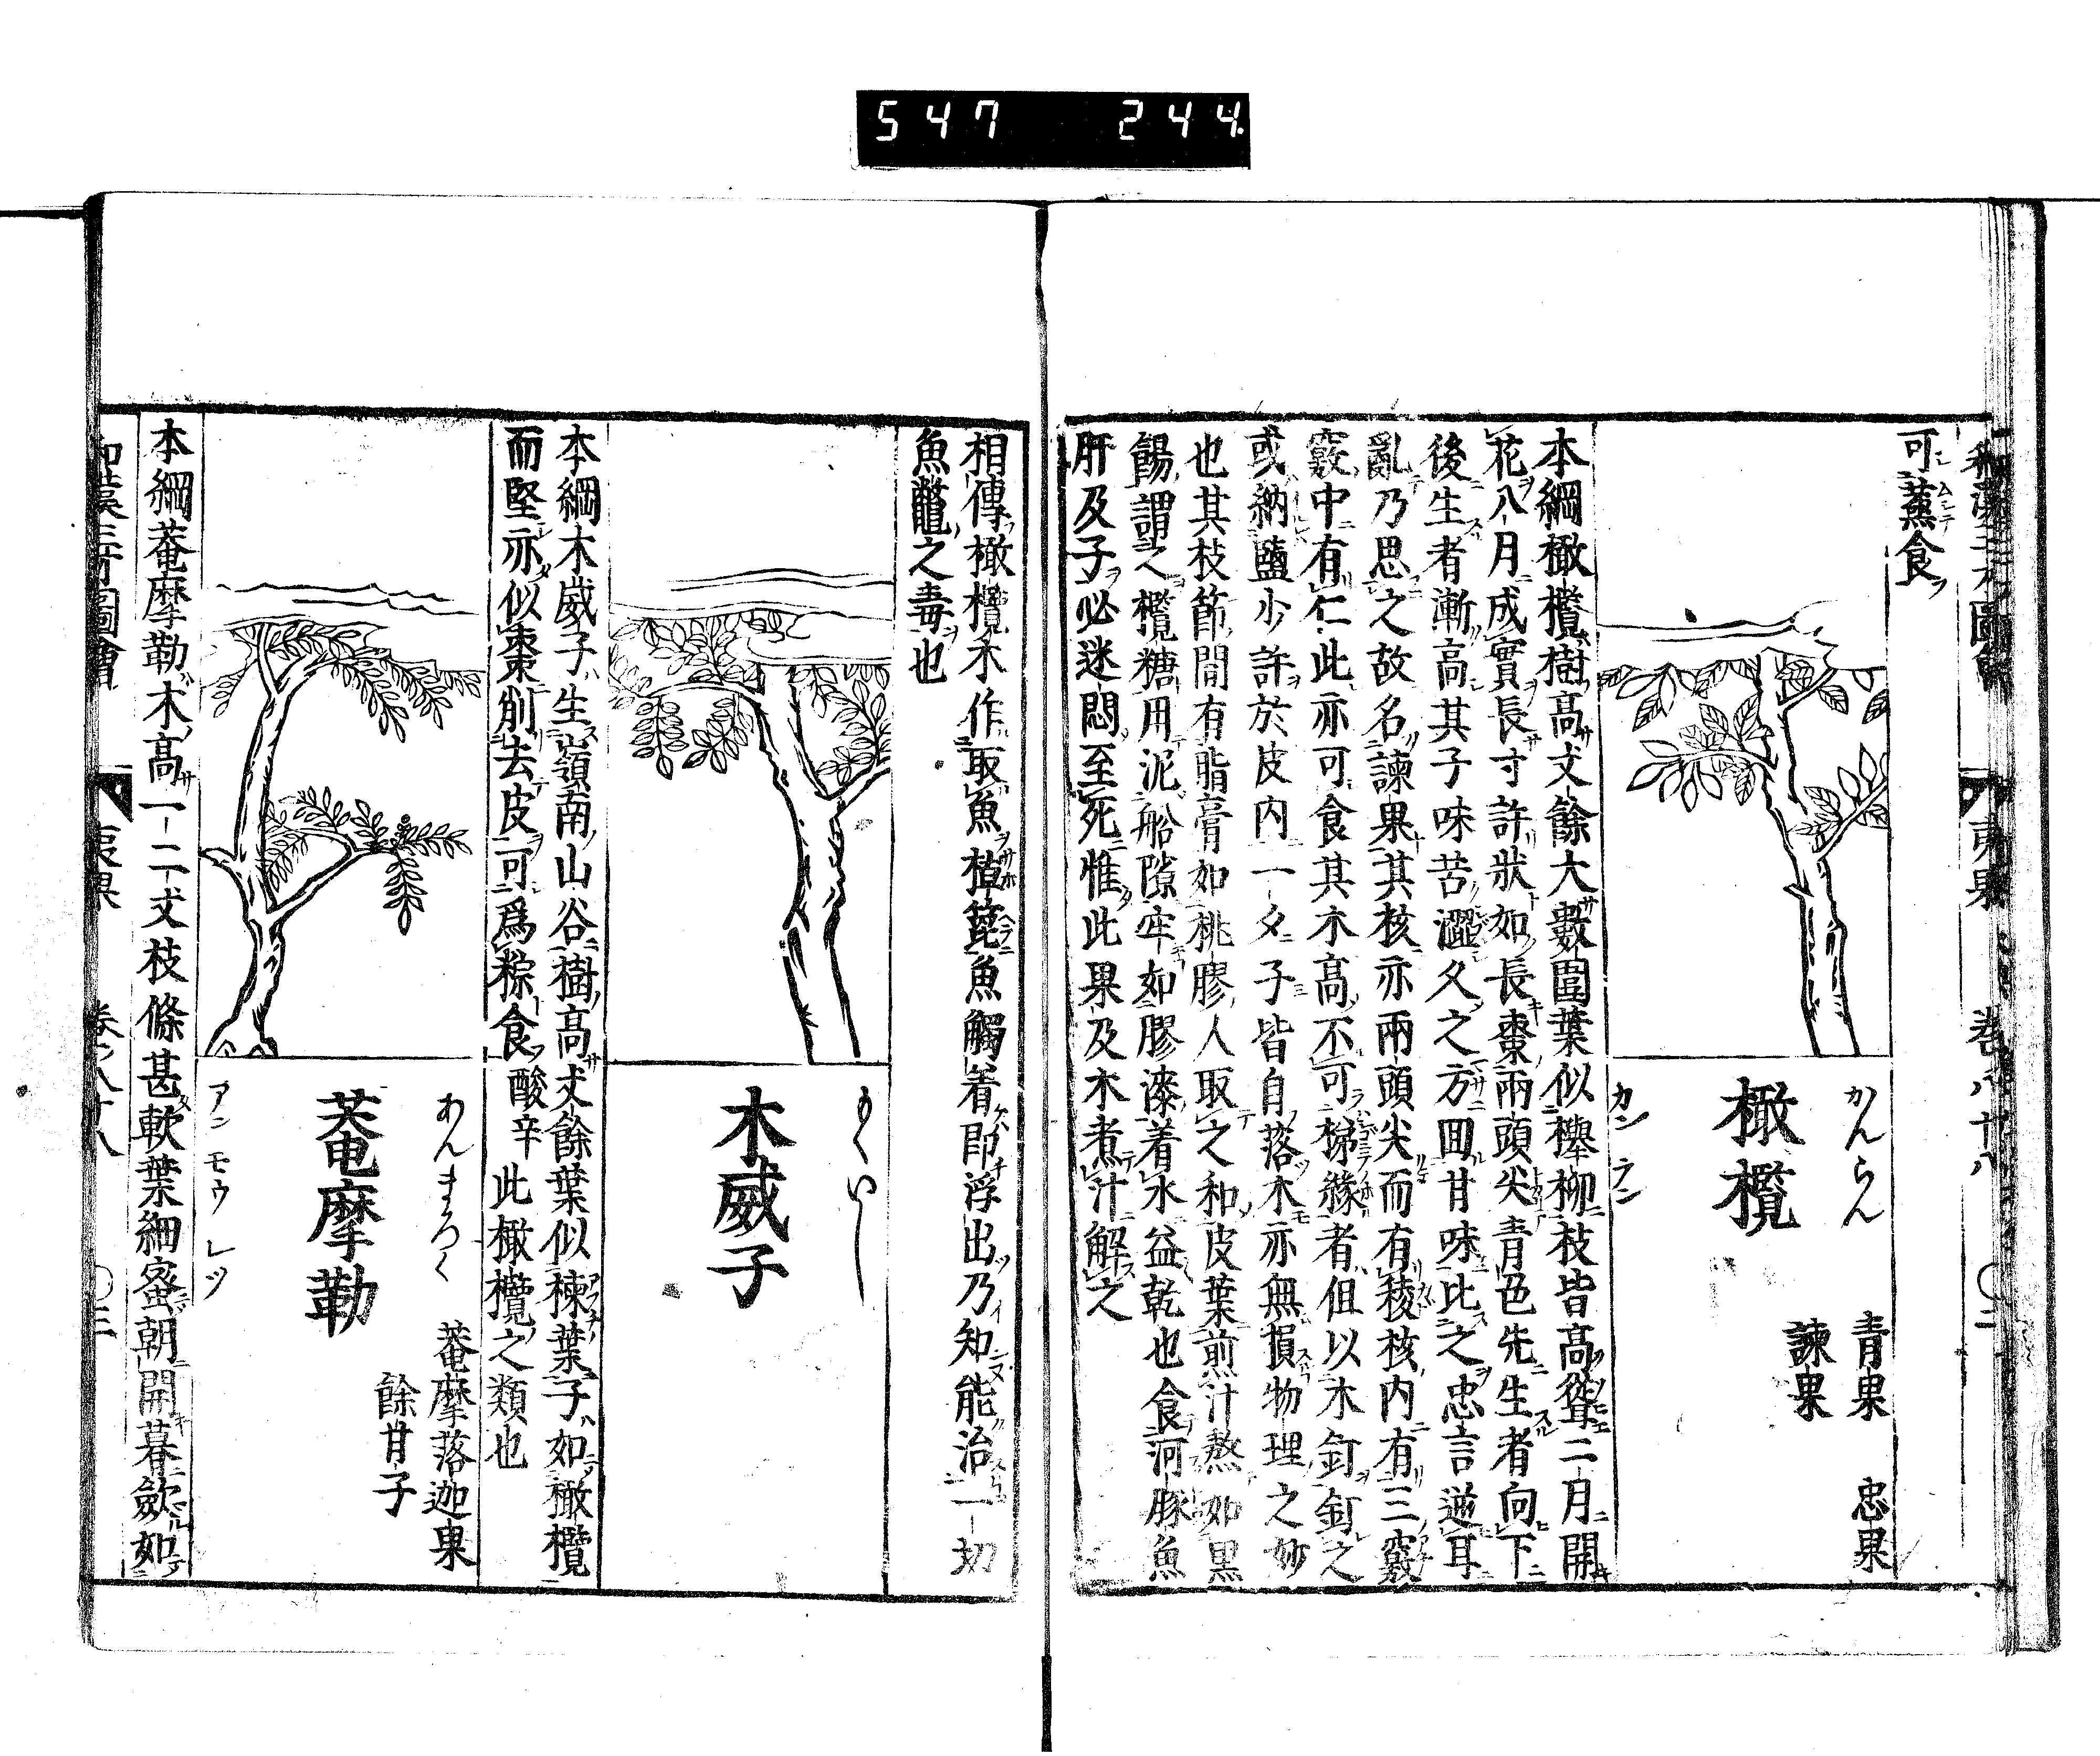 547 244
可蒸食
橄欖
かんらん
カン ラン
青果 忠果
諫果
本綱橄欖樹高丈餘大數圍葉似櫸柳枝皆高聳二月開
花八月成實長寸許狀如長棗兩頭尖青色先生者向下
後生者漸高其子味苦澀久之方囬甘味比之忠言逆耳
亂乃思之故名諫果其核亦兩頭尖而有稜核内有三竅
竅中有仁此亦可食其木高不可梯緣者但以木釘釘之
或納鹽少許於皮内一夕子皆自落木亦無損物理之妙
也其枝節間有脂膏如桃膠人取之和皮葉煎汁熬如黒
餳謂之欖糖用泥船隙牢如膠漆着水益乾也食河豚魚
肝及子必迷悶至死惟此果及木煮汁解之
和漢三才圖會 夷果 巻ノ八十八 〇二
相傳橄欖木作取魚楂箆魚觸着即浮出乃知能治一切
魚鼈之毒也
木威子
もくいし
本綱木威子生嶺南山谷樹高丈餘葉似楝葉子如橄欖
而堅亦似棗削去皮可爲粽食酸辛此橄欖之類也
菴摩勒
あんまろく
アン モウ レツ
菴摩落迦果
餘甘子
本綱菴摩勒木高一二丈枝條甚軟葉細蜜朝開暮歛如
和漢三才圖會 夷果 巻ノ八十八 〇三